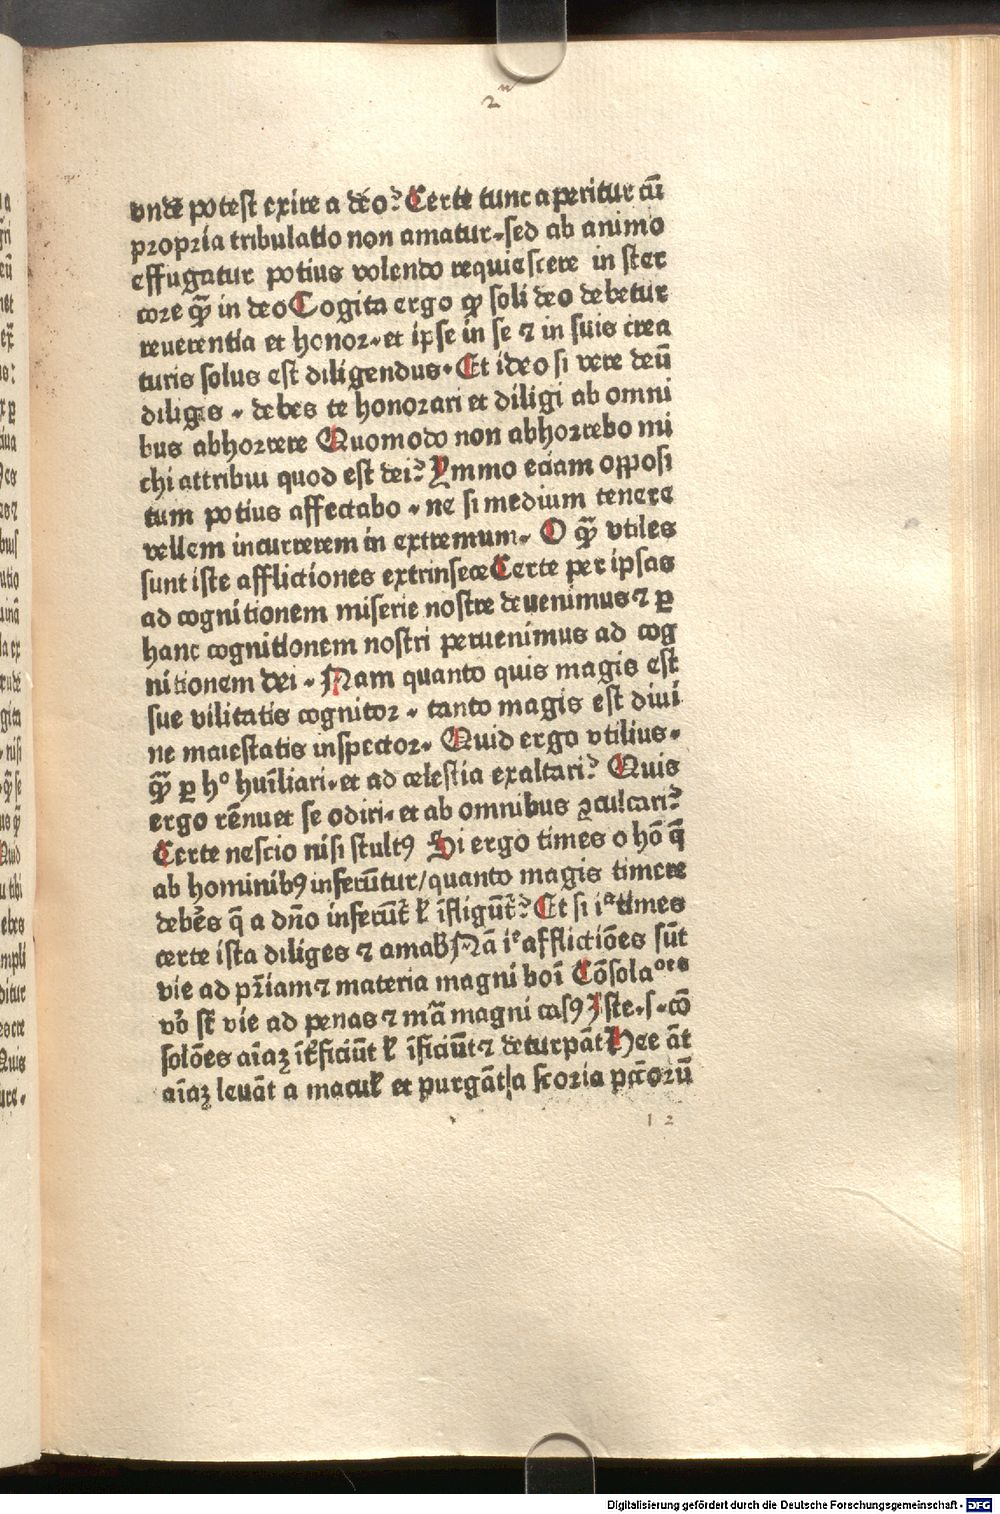 2
vnde potest exire a deo? Certe tunc aperitur cū
propria tribulatio non amatur. sed ab animo
effugatur potius volendo requiescere in ster
core q̄ꝫ in deo Cogita ergo ꝙ soli deo debetur
reuerentia et honor. et ipse in se ⁊ in suis crea
turis solus est diligendus. Et ideo si vere deū
diligis . debes te honorari et diligi ab omni
bus abhorrere Quomodo non abhorrebo mi
chi attribui quod est dei? Ymmo eciam opposi
tum potius affectabo . ne si medium tenere
vellem incurrerem in extremum. O q̄ꝫ vtiles
sunt iste afflictiones extrinsece Certe per ipsas
ad cognitionem miserie nostre deuenimus ⁊ ꝑ
hanc cognitionem nostri peruenimus ad cog
nitionem dei . Nam quanto quis magis est
sue vilitatis cognitor . tanto magis est diui
ne maiestatis inspector. Quid ergo vtilius.
q̄ꝫ ꝑ hº hūiliari. et ad celestia exaltari? Quis
ergo rēnuet se odiri. et ab omnibus ꝯculcari?
Certe nescio nisi stultꝰ Si ergo times o hō q̄
ab hominibꝰ inferūtur/quanto magis timere
debēs q̄ a dn̄o inferūt̄ ł īfligūt̄? Et si iª times
certe ista diliges ⁊ amab̄ Nā iᵉ afflictiōes sūt
vie ad pr̄iam ⁊ materia magni boī Cōsolaºᵉˢ
vº sūt vie ad penas ⁊ mā magni casꝰ Iste. s. cō
solōes aīaꝫ īt̄ficiūt ł īficiūt ⁊ deturpāt Hee āt
aīaꝫ leuāt a macuł et purgāt a scoria pccōrū
12
Digitalisierung gefördert durch die Deutsche Forschungsgemeinschaft - DFG